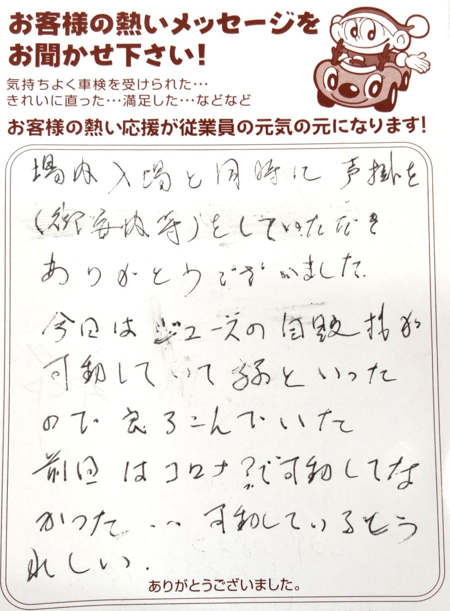 お客様の熱いメッセージを
お聞かせ下さい!
気持ちよく車検を受けられた…
きれいに直った…満足した…などなど
お客様の熱い応援が従業員の元気の元になります!
場内入場と同時に声掛を
(御案内等)をしていただき
ありがとうございました.
今回はジュースの自販機が
可動していて 孫といった
ので 良ろこんでいた
前回はコロナ?で可動してな
かった… 可動しているとう
れしい.
ありがとうございました。